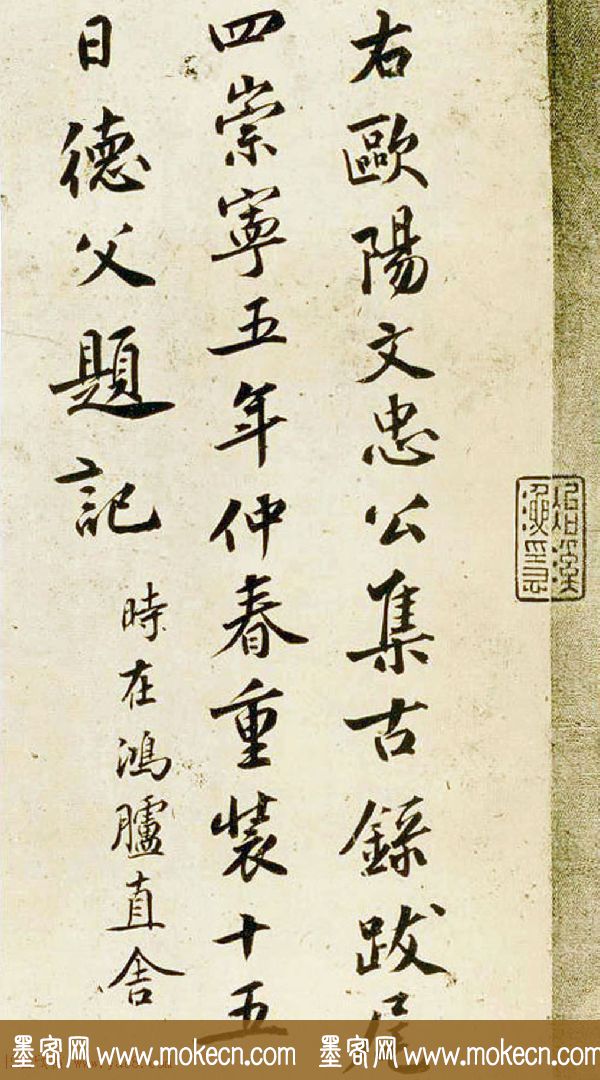 右歐陽文忠公集古錄跋尾
四崇寧五年仲春重裝十五
日德父題記
時在鴻臚直舍
墨客网 www.mokecn.com 墨客网 www.mokecn.com